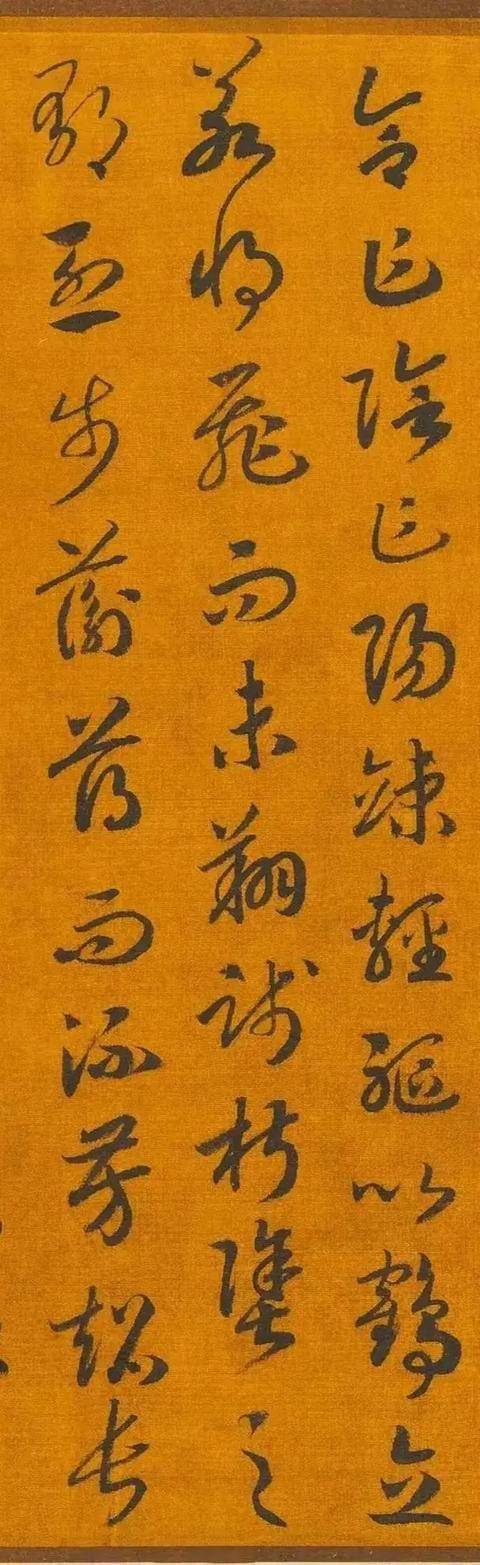 合乍陰乍陽竦輕軀以鶴立
若將飛而未翔踐椒塗之
郁烈步蘅薄而流芳超長